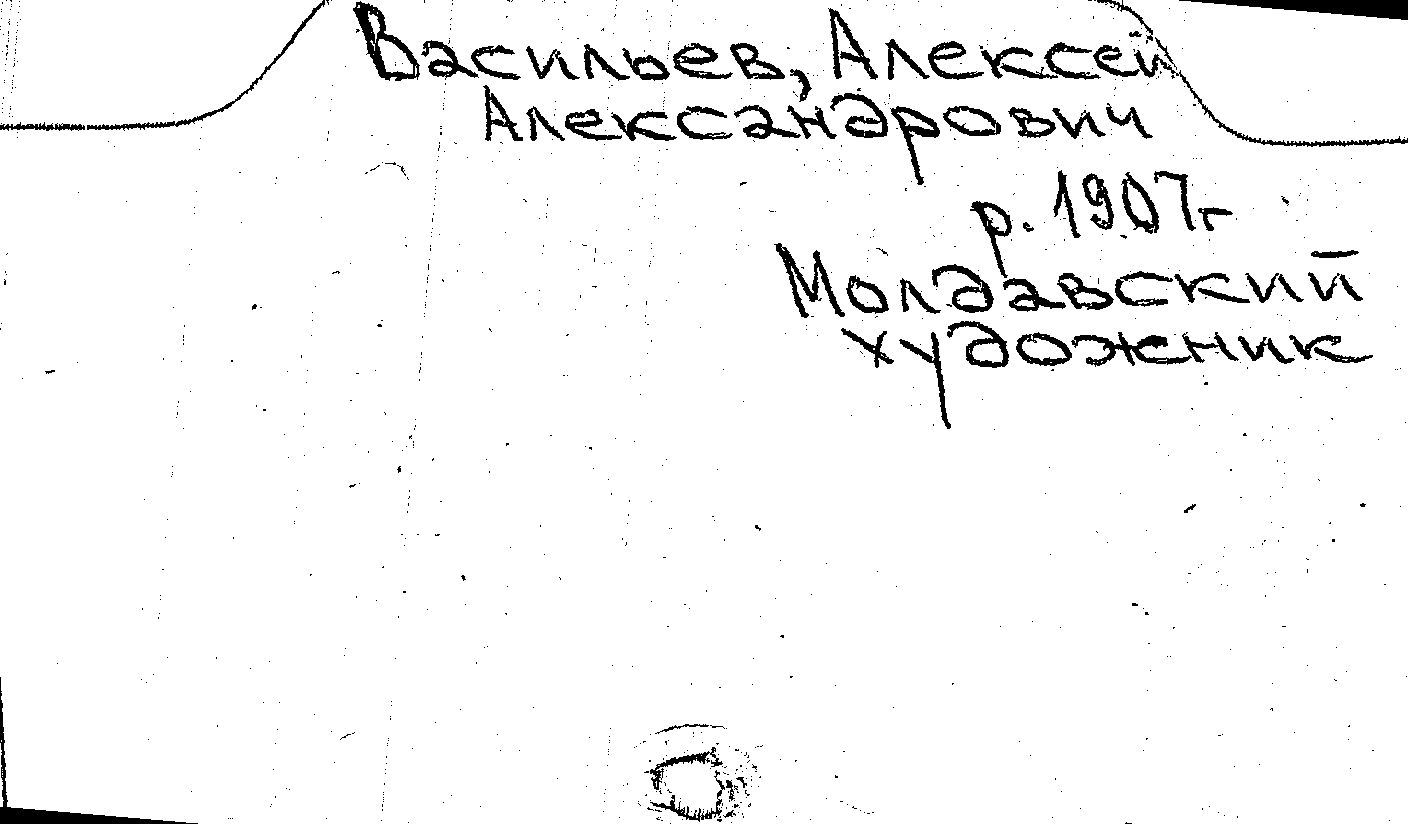 Васильев, Алексей
Александрович
р. 1907г
Молдавский
художник